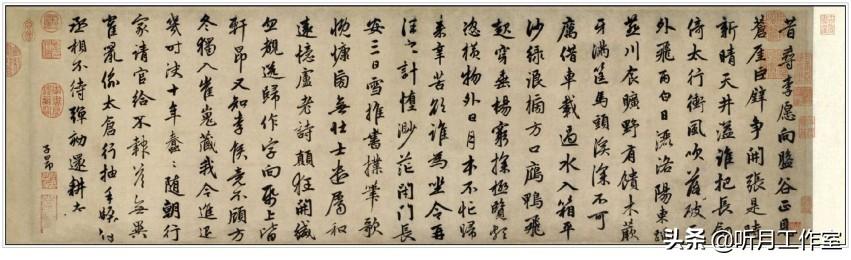 昔尋李愿向盤谷正見
蒼崖巨壁爭開張是時
新晴天井溢誰把長劍
倚太行衝風吹落破天
外飛雨白日灑洛陽東蹈
燕川食曠野有饋木蕨
牙滿筐馬頭溪深不可
厲借車載過水入箱平
沙綠浪搒方口鴈鴨飛
起穿垂楊窮探極覽頗
恣橫物外日月本不忙歸
來辛苦欲誰為坐令再
往之計墮渺茫閉門長
安三日雪推書撲筆歌
慨慷旁無壯士遣屬和
遠憶盧老詩顛狂開緘
忽覩送歸作字向紙上皆
軒昂又知李侯竟不顧方
冬獨入崔嵬藏我今進退
幾時決十年蠢〻隨朝行
家請官給不報答無異
雀鼠偷太倉行抽手板付
丞相不待彈劾還耕桑
子昂
头条@听月工作室